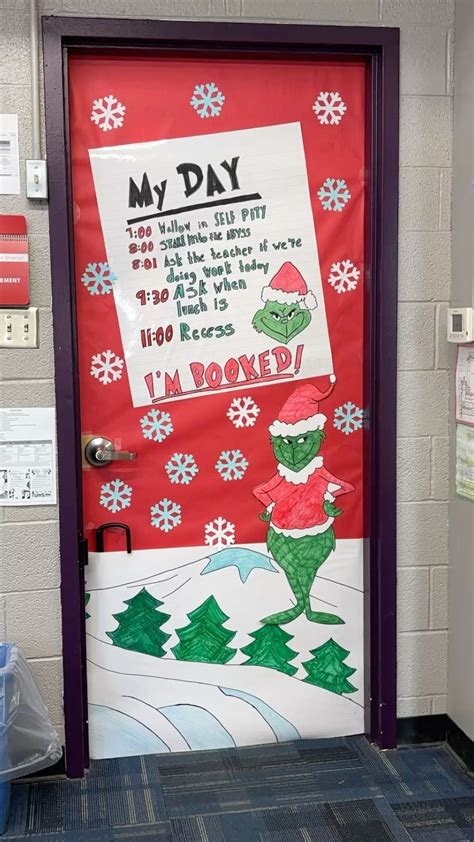 My DAY
7:00 Wallow in SELF PITY
8:00 STARE Into the ABYSS
8:01 Ask the teacher if we're
doing work today
9:30 Ask when
lunch is
11:00 Recess
I'M BOOKED!